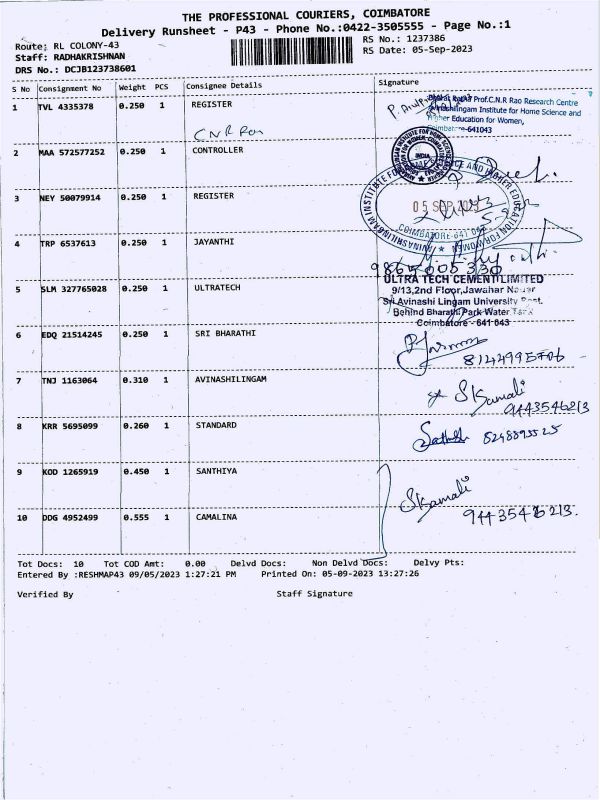 THE PROFESSIONAL COURIERS, COIMBATORE
Delivery Runsheet - P43 - Phone No.:0422-3505555 - Page No.:1
Route: RL COLONY-43 RS No.: 1237386
Staff: RADHAKRISHNAN RS Date: 05-Sep-2023
DRS No.: DCJB123738601
S No Consignment No Weight PCS Consignee Details Signature
1 TVL 4335378 0.250 1 REGISTER
Prof.C.N.R Rao Research Centre
Avinashilingam Institute for Home Science and
Higher Education for Women,
Coimbatore-641043
CNR Rao
2 MAA 572577252 0.250 1 CONTROLLER
INDIA
3 NEY 50079914 0.250 1 REGISTER
05 SEP 2023
COIMBATORE-641 043
4 TRP 6537613 0.250 1 JAYANTHI
9865005330
5 SLM 327765028 0.250 1 ULTRATECH
ULTRA TECH CEMENT LIMITED
9/13,2nd Floor,Jawahar Nagar
Sri Avinashi Lingam University Post.
Behind Bharathi Park Water Tank
Coimbatore - 641 043
6 EDQ 21514245 0.250 1 SRI BHARATHI
7 TNJ 1163064 0.310 1 AVINASHILINGAM
SKamali
9443546213
8 KRR 5695099 0.260 1 STANDARD
8248895525
9 KOD 1265919 0.450 1 SANTHIYA
SKamali
10 DDG 4952499 0.555 1 CAMALINA
9443546213.
Tot Docs: 10 Tot COD Amt: 0.00 Delvd Docs: Non Delvd Docs: Delvy Pts:
Entered By :RESHMAP43 09/05/2023 1:27:21 PM Printed On: 05-09-2023 13:27:26
Verified By Staff Signature